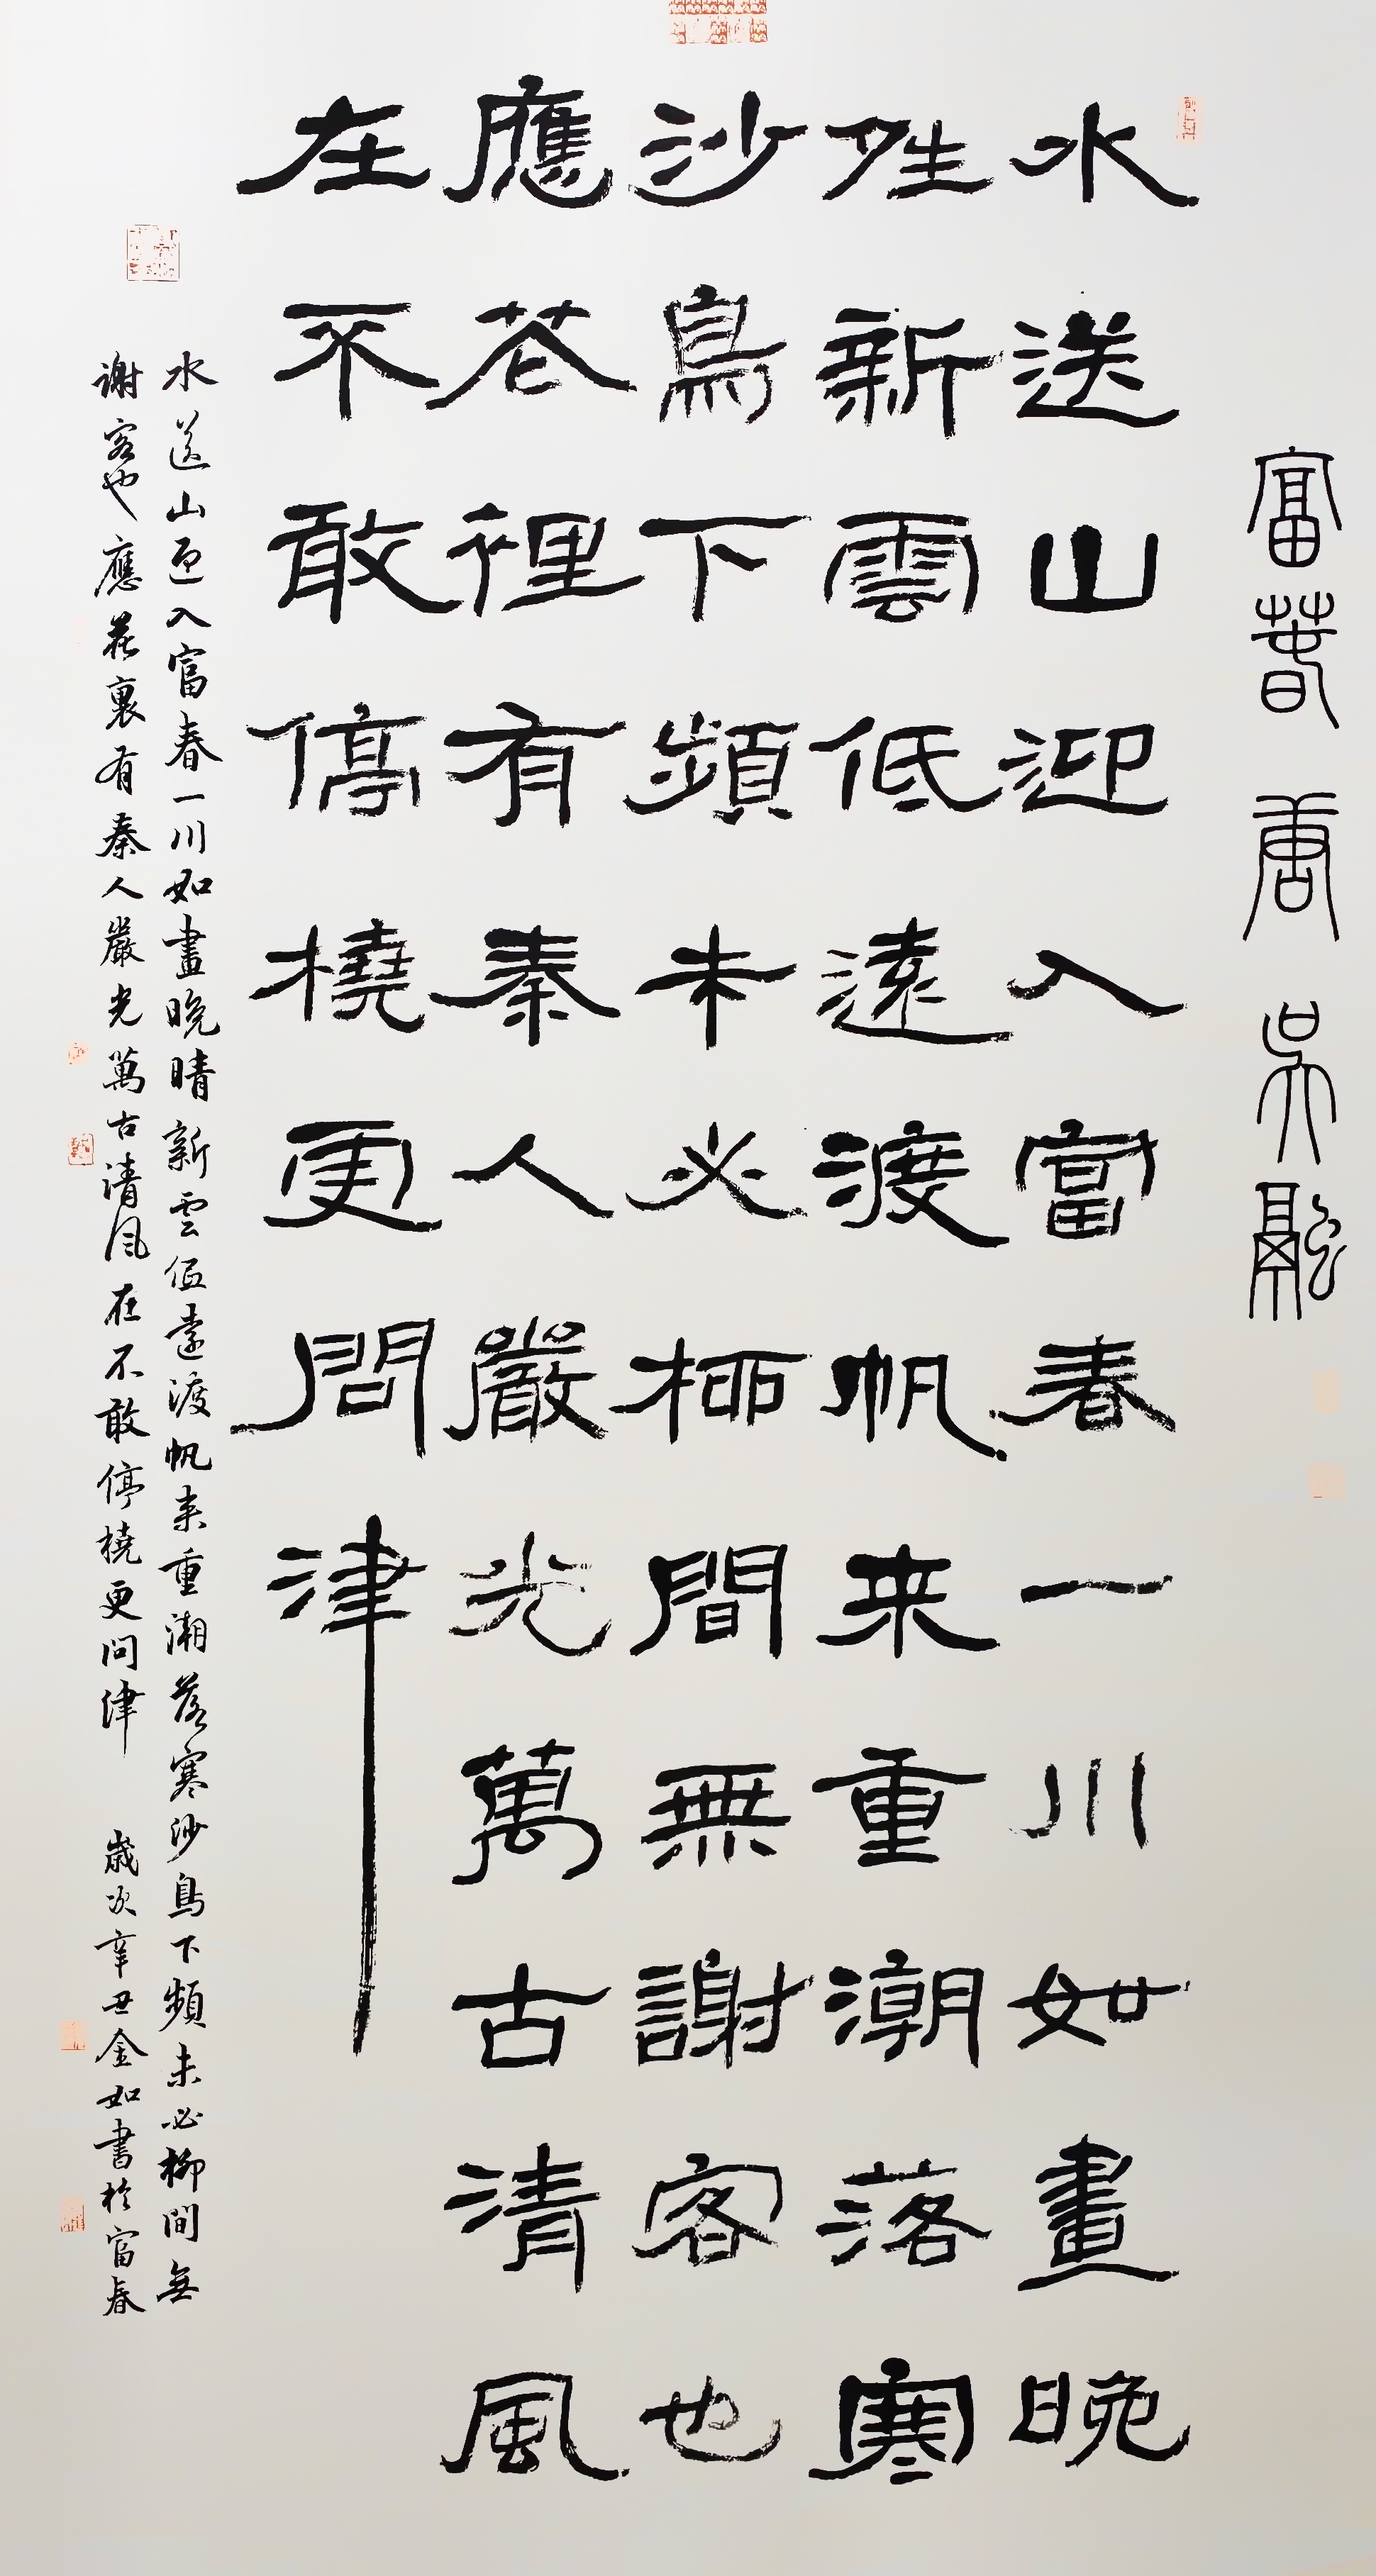 富春 唐 吳融
水送山迎入富春一川如畫晚
夝新雲低遠渡帆来重潮落寒
沙鳥下頻未必柳間無謝客也
應花裡有秦人嚴光萬古清風
在不敢停橈更問津
水送山迎入富春一川如畫晚晴新雲低遠渡帆来重潮落寒沙鳥下頻未必柳間無
謝客也應花裏有秦人嚴光萬古清風在不敢停橈更問津 歲次辛丑金如書於富春